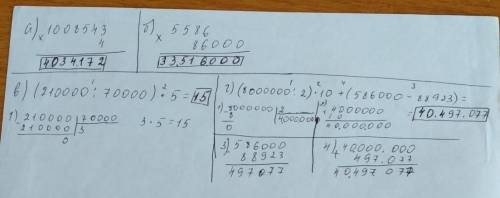 а) × 1008543
4
4034.172
б) × 5586
86000
33,516000
в) (210000 : 70000) · 5 = 15
1) 210000 | 70000
210000 | 3
0
3 · 5 = 15
г) (8000000 : 2) · 10 + (586000 - 88923) =
= 40.497.077
1) 8000000 | 2
8 | 4000000
0
2) 4000000
10
40,000,000
3) 586000
88923
497077
4) + 40,000.000
497.077
40,497 077